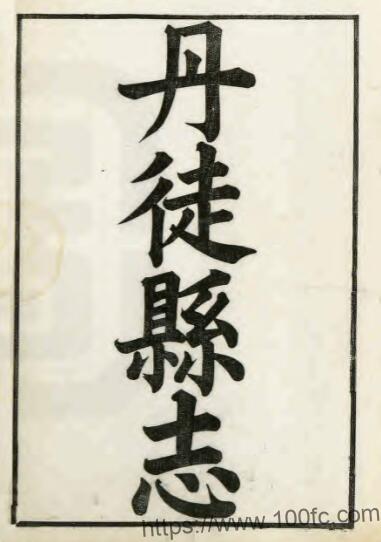 丹徒縣志
https://www.100fc.com